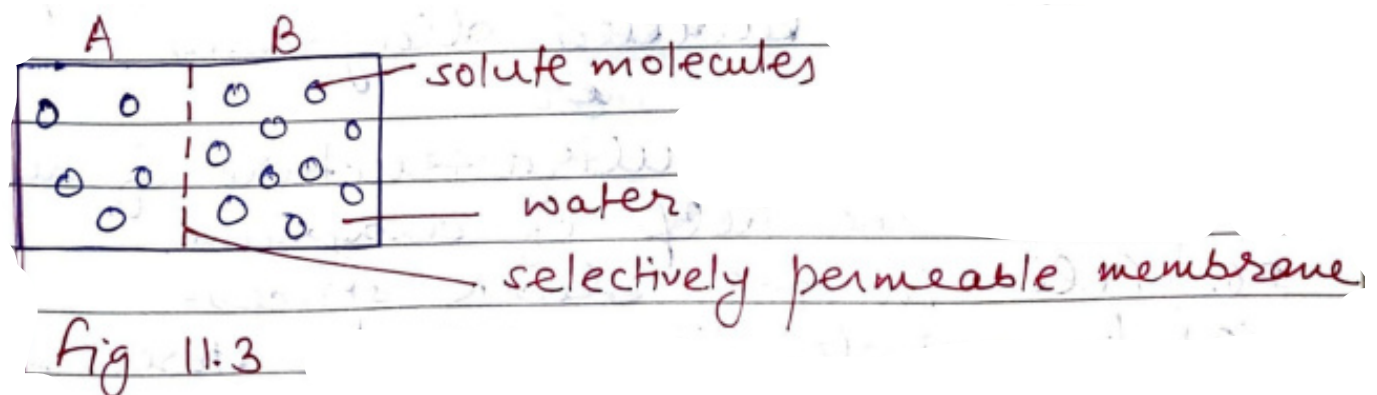 A B
solute molecules
water
selectively permeable membrane
fig 11.3